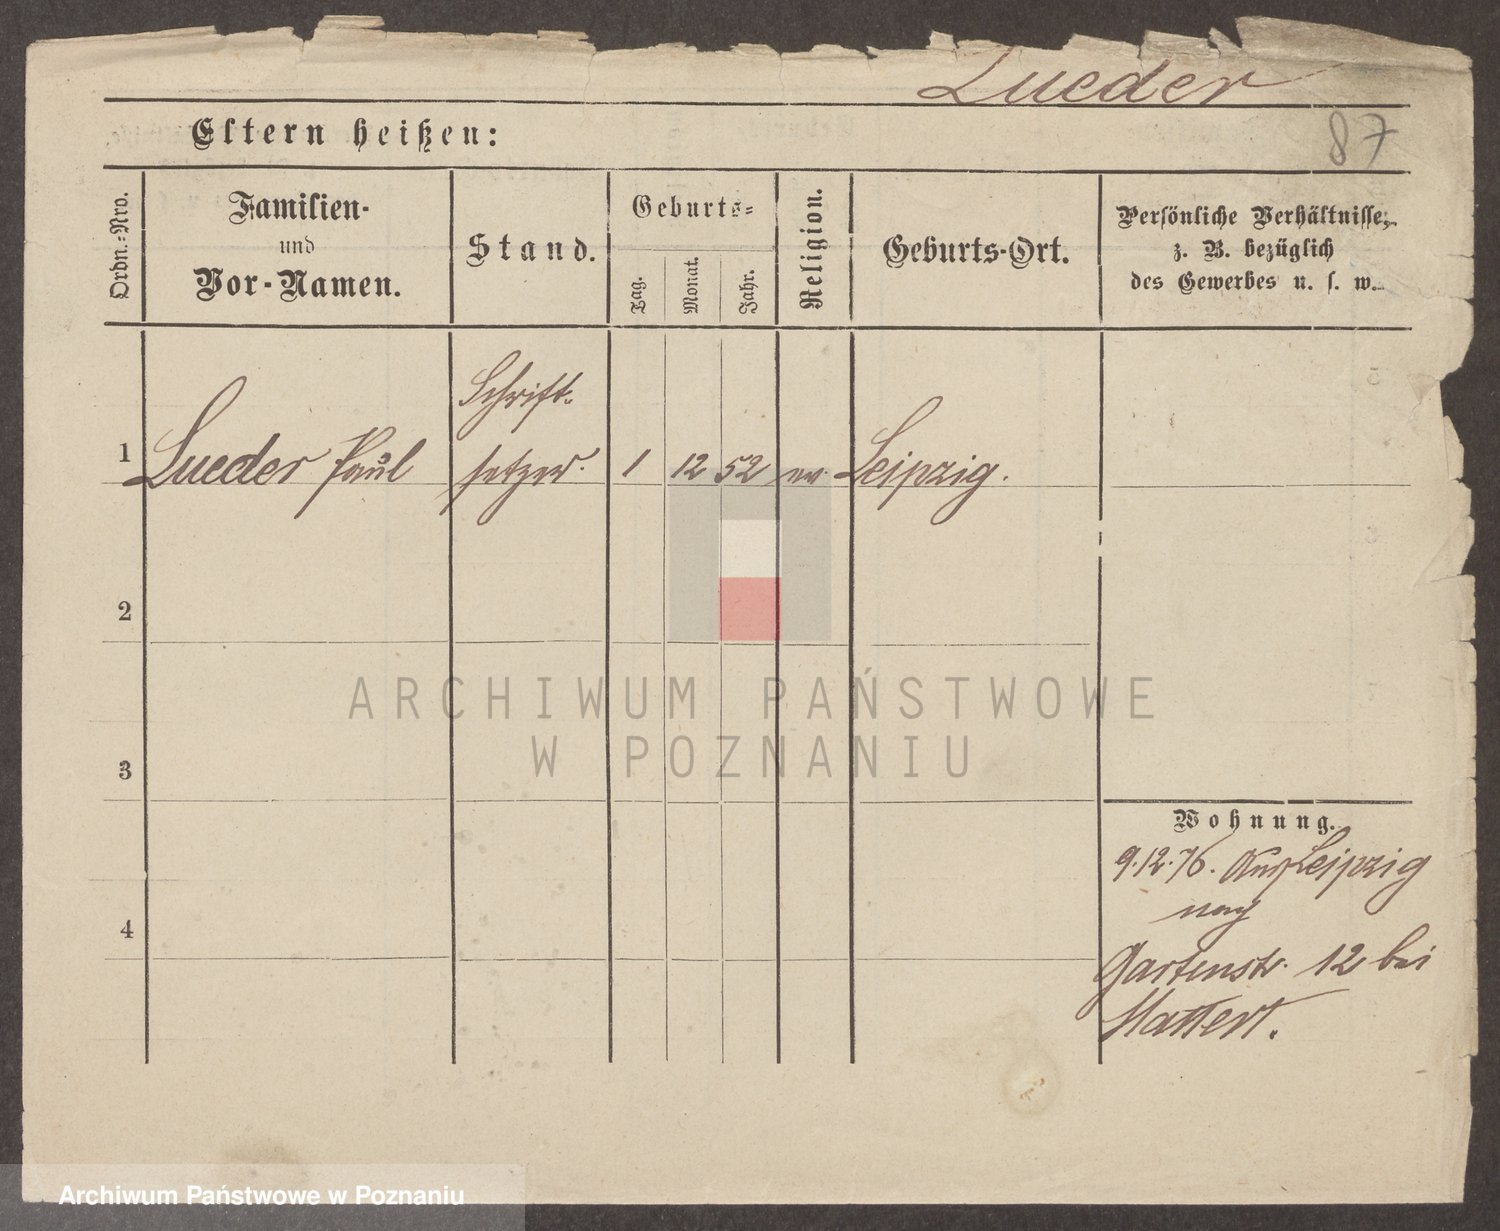 Lueder
87
Eltern heißen:
Ordn.-Nro.
Familien-
und
Vor-Namen.
Stand.
Geburts-
Tag.
Monat.
Jahr.
Religion.
Geburts-Ort.
Persönliche Verhältnisse,
z. B. bezüglich
des Gewerbes u. s. w.
1
Lueder Paul
Schrift-
setzer.
1
12
52
ev.
Leipzig.
2
3
4
ARCHIWUM PAŃSTWOWE
W POZNANIU
Wohnung.
9.12.76. Leipzig
nach
Gartenstr. 12 bei
Mattert.
Archiwum Państwowe w Poznaniu